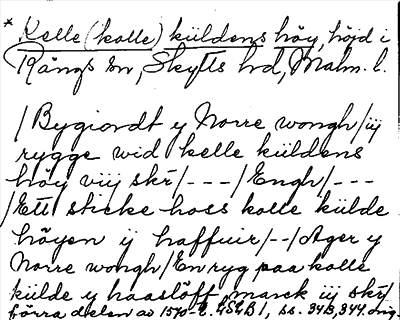 * Kelle (kolle) küldens höy, höjd i
Rängs sn, Skytts hd, Malm. l.
/Bygiordt y Norre wongh/iij
rygge wid kelle küldens
höy viij skr/---/Engh/---
/Ett sticke hoss kolle külde
höyen ij haffuir/--/Ager y
Norre wongh/En ryg paa kolle
külde y haaslöff marck iij skr/
förra delen av 1570-t. GSGB1, ss. 343, 344. orig.